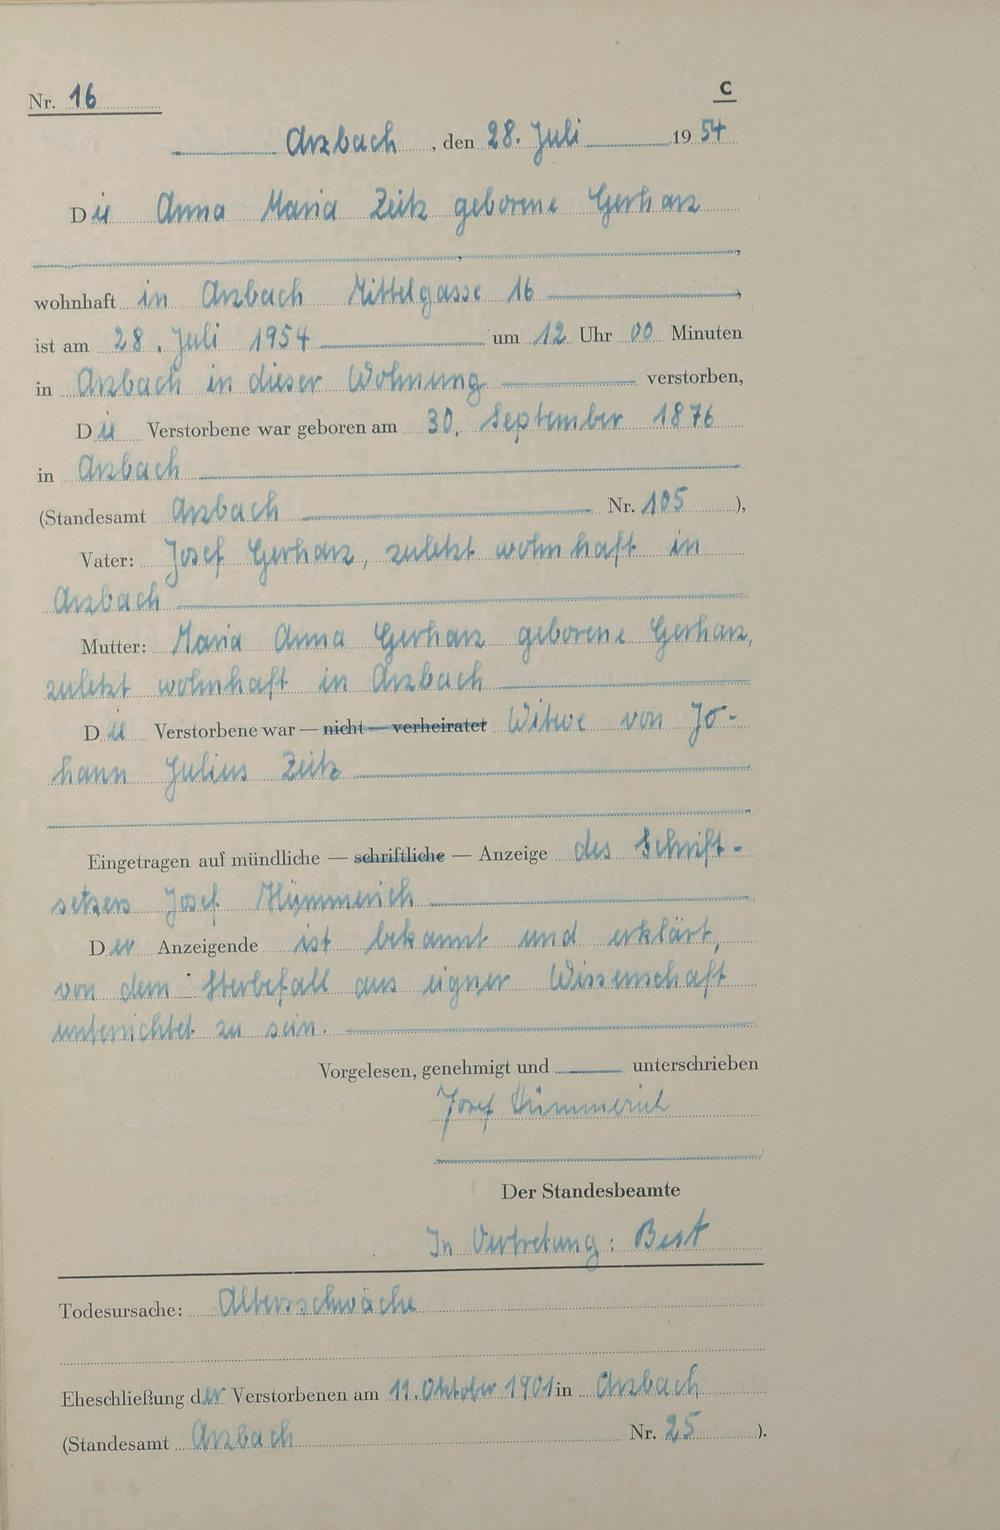 Nr. 16
C
Arzbach, den 28. Juli 1954
Die Anna Maria Zeitz geborene Gerharz
,
wohnhaft in Arzbach Mittelgasse 16,
ist am 28. Juli 1954 um 12 Uhr 00 Minuten
in Arzbach in dieser Wohnung verstorben,
Die Verstorbene war geboren am 30. September 1876
in Arzbach
(Standesamt Arzbach Nr. 105),
Vater: Josef Gerharz, zuletzt wohnhaft in
Arzbach
Mutter: Maria Anna Gerharz geborene Gerharz,
zuletzt wohnhaft in Arzbach
Die Verstorbene war — nicht — verheiratet Witwe von Jo-
hann Julius Zeitz
Eingetragen auf mündliche — schriftliche — Anzeige des Schrift-
setzers Josef Hümmerich
Der Anzeigende ist bekannt und erklärt,
von dem Sterbefall aus eigner Wissenschaft
unterrichtet zu sein.
Vorgelesen, genehmigt und unterschrieben
Josef Hümmerich
Der Standesbeamte
In Vertretung: Best
Todesursache: Altersschwäche
Eheschließung der Verstorbenen am 11. Oktober 1901 in Arzbach
(Standesamt Arzbach Nr. 25).